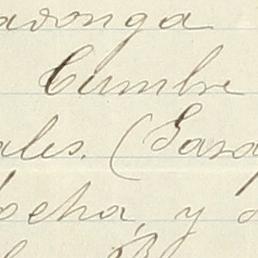 adonga
Cumbre
ales. (Gara
ocha, y